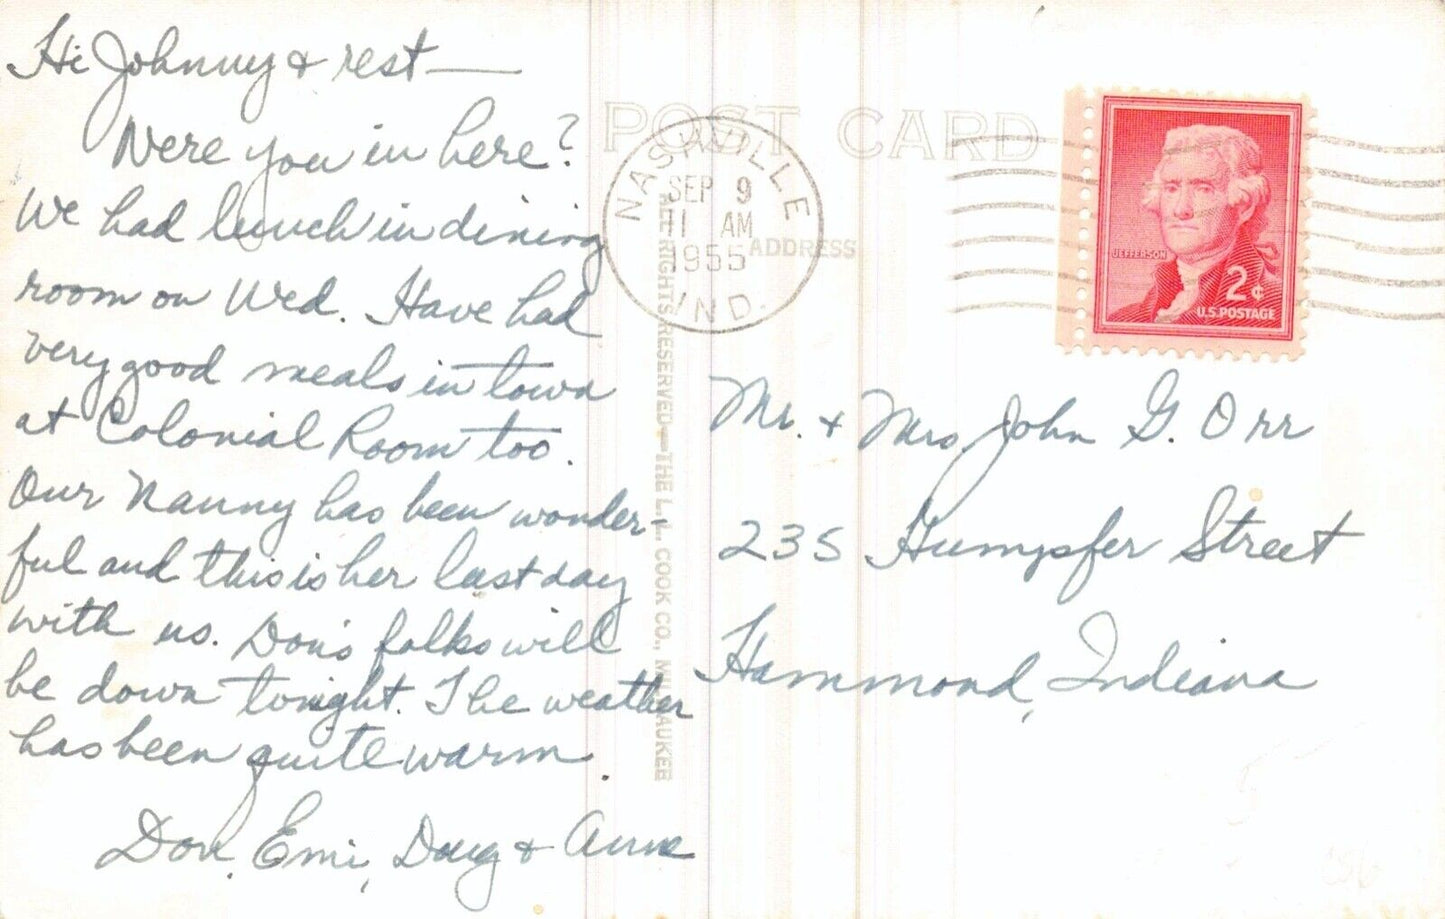 Hi Johnny & rest —
Were you in here?
We had lunch in dining
room on Wed. Have had
very good meals in town
at Colonial Room too.
Our Nanny has been wonder-
ful and this is her last day
with us. Don's folks will
be down tonight. The weather
has been quite warm.
Don, Emi, Doug & Anne
POST CARD
ADDRESS
NASHVILLE
SEP 9
11 AM
1955
IND.
JEFFERSON
2¢
U.S. POSTAGE
ALL RIGHTS RESERVED—THE L.L. COOK CO., MILWAUKEE
Mr. & Mrs. John G. Orr
235 Humpfer Street
Hammond, Indiana